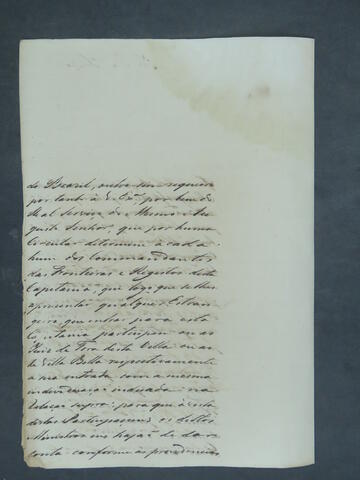 do Brazil, outro sim requeiro
por tanto a V. Exª, por bem do
Real Serviço do Mesmo Au
gusto Senhor, que por huma
Circular determine a cada
hum dos Commandantes
das Fronteiras e Registos desta
Capitania, que logo que se lhes
apresentar qualquer Estran
geiro que entrar para esta
Capitania participem ou ao
Juiz de Fora desta Villa ou ao
de Villa Bella respectivamente
a sua entrada com a mesma
individuação indicada na
Relação supra: para que à vista
destas Participaçoens os ditos
Ministros me hajão de dar
conta conforme as providencias